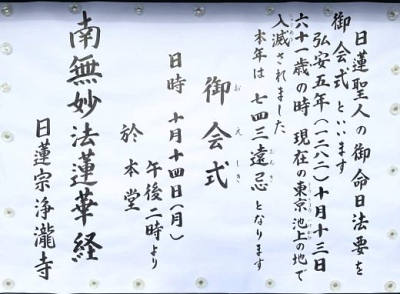 日蓮聖人の御命日法要を
御会式といいます
弘安五年(一二八二)十月十三日
六十一歳の時 現在の東京池上の地で
入滅されました
本年は 七四三遠忌となります
御会式
日時 十月十四日(月)
午後二時より
於本堂
南無妙法蓮華経
日蓮宗浄瀧寺